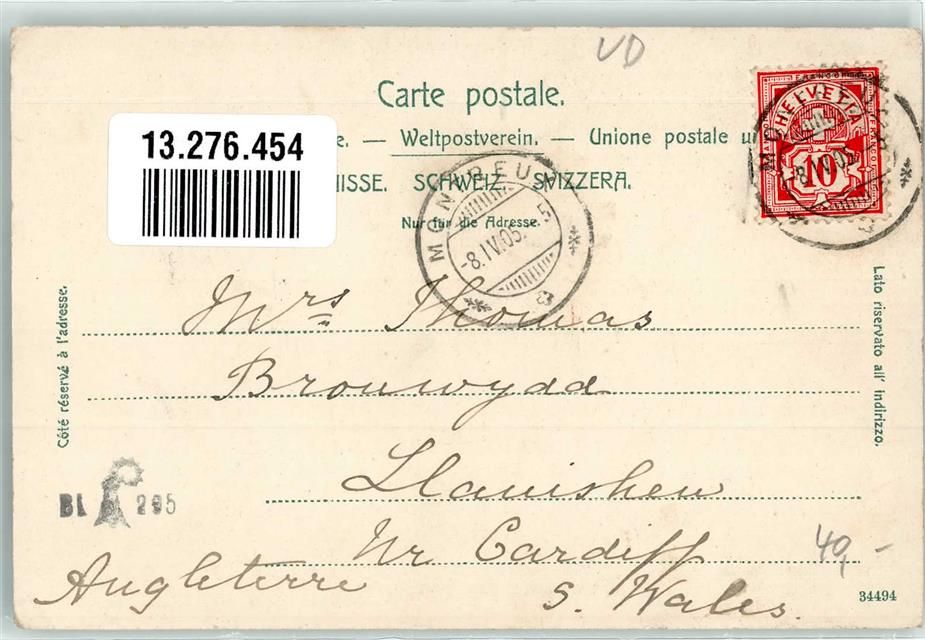 VD
Carte postale.
13.276.454
e. — Weltpostverein. — Unione postale u
ISSE. SCHWEIZ. SVIZZERA.
Nur für die Adresse.
MONTREUX
-8.IV.05.
HELVETIA
FRANCO
10
-8.IV.05.
Côté réservé à l'adresse.
Lato riservato all' indirizzo.
Mrs Thomas
Bronwydd
Llanishen
Nr Cardiff
S. Wales.
Angleterre
BL 295
40,-
34494